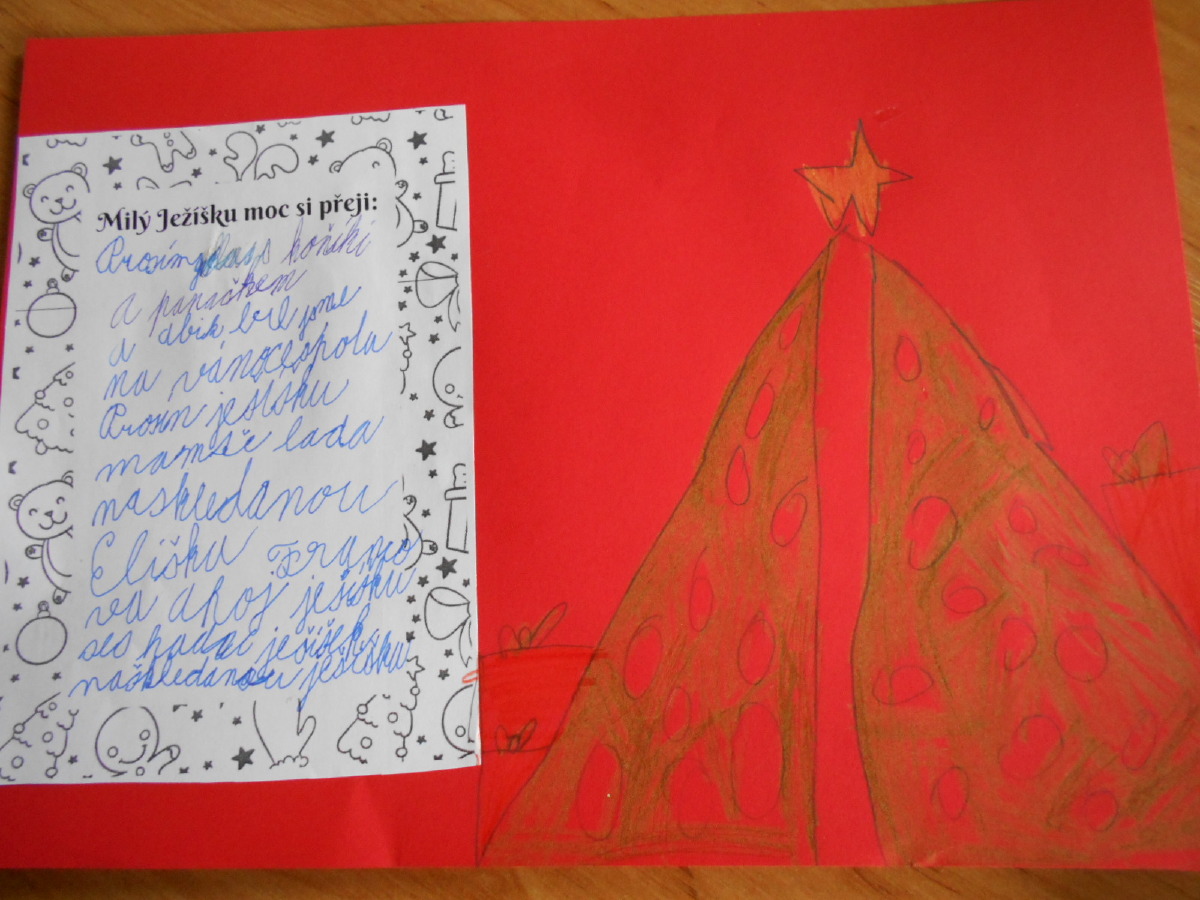 Milý Ježíšku moc si přeji:
Prosím koníki
a panačkem
a abik bil jsme
na vánoce spolu
Prosim ješisku
mamše lada
naskledanou
Elišku Franco
va ahoj ješisku
ses hodnej ješišek
naškledanou ješisku